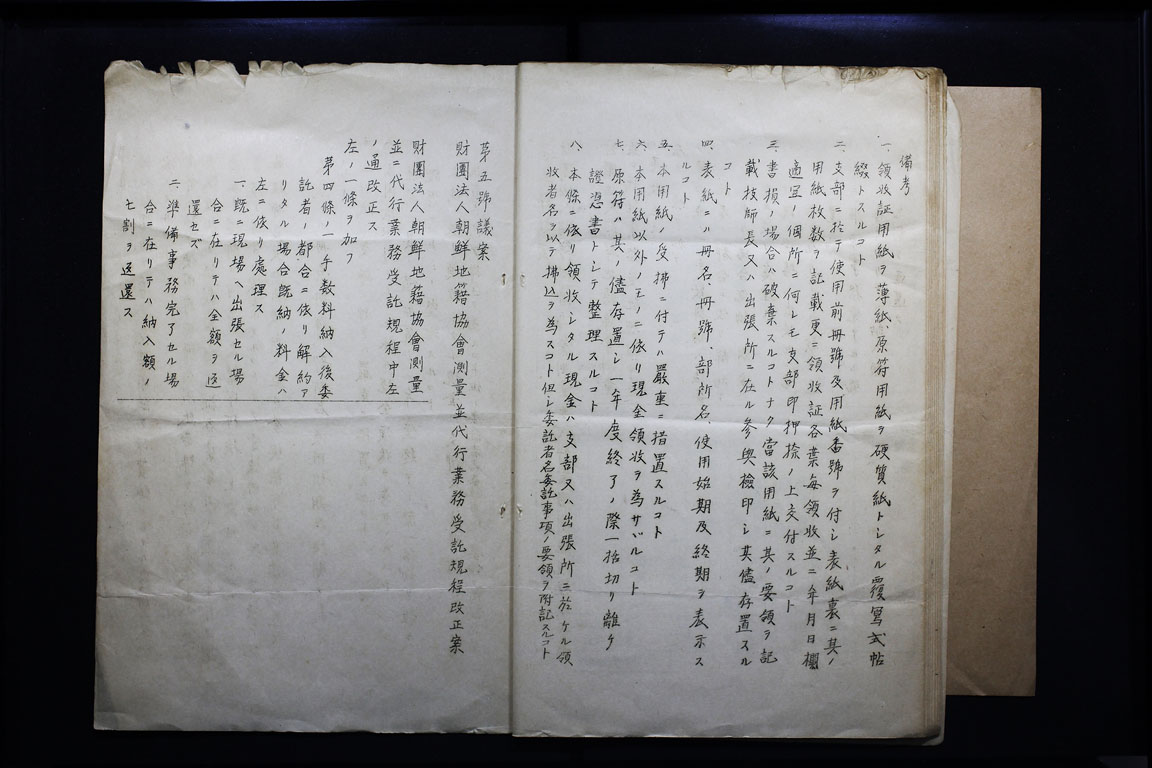 備考
一、領收証用紙ヲ薄紙、原符用紙ヲ硬質紙トシタル覆寫式帖
綴トスルコト
二、支部ニ於テ使用前冊號及用紙番號ヲ付シ表紙裏ニ其ノ
用紙枚数ヲ記載更ニ領收証各葉毎領收並ニ年月日欄
適宜ノ個所ニ何レモ支部印押捺ノ上交付スルコト
三、書損ノ場合ハ破棄スルコトナク當該用紙ニ其ノ要領ヲ記
載技師長又ハ出張所ニ在ル参與檢印シ其儘存置スル
コト
四、表紙ニハ冊名、冊號、部所名、使用始期及終期ヲ表示ス
ルコト
五、本用紙ノ受拂ニ付テハ嚴重ニ措置スルコト
六、本用紙以外ノモノニ依リ現金領收ヲ為サヾルコト
七、原符ハ其ノ儘存置シ一年度終了ノ際一括切リ離ケ
證憑書トシテ整理スルコト
八、本條ニ依リ領收シタル現金ハ支部又ハ出張所ニ於ケル領
收者名ヲ以テ拂込ヲ為スコト但シ委託者名委託事項ノ要領ヲ附記スルコト
第五號議案
財團法人朝鮮地籍協會測量並代行業務受託規程改正案
財團法人朝鮮地籍協會測量
並ニ代行業務受託規程中左
ノ通改正ス
左ノ一條ヲ加フ
第四條ノ一手数料納入後委
託者ノ都合ニ依リ解約ア
リタル場合既納ノ料金ハ
左ニ依リ處理ス
一、既ニ現場ヘ出張セル場
合ニ在リテハ全額ヲ返
還セズ
二、準備事務完了セル場
合ニ在リテハ納入額ノ
七割ヲ返還ス